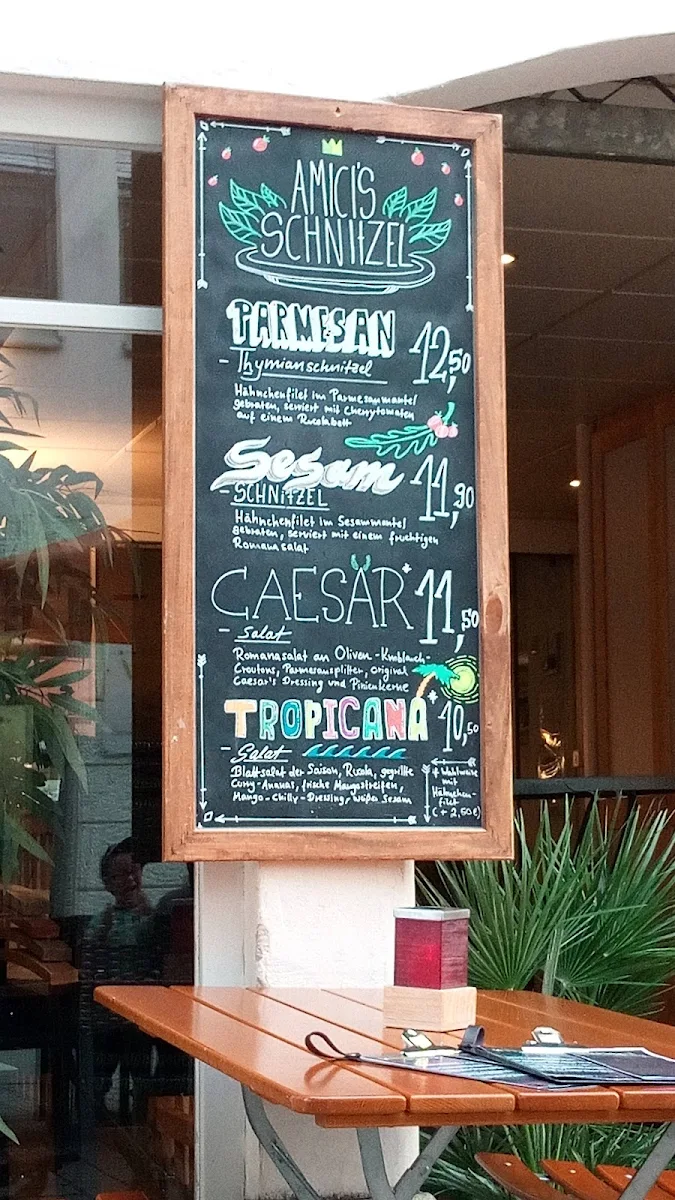 AMICI'S
SCHNITZEL
PARMESAN 12,50
- Thymianschnitzel
Hähnchenfilet im Parmesanmantel
gebraten, serviert mit Cherrytomaten
auf einem Rucolabett
Sesam 11,90
- SCHNITZEL
Hähnchenfilet im Sesammantel
gebraten, serviert mit einem fruchtigen
Romanasalat
CAESAR* 11,50
- Salat
Romanasalat an Oliven-Knoblauch-
Croutons, Parmesansplitter, original
Caesar's Dressing und Pinienkerne
TROPICANA* 10,50
- Salat
Blattsalat der Saison, Rucola, gegrillte
Curry-Ananas, frische Mangostreifen,
Mango-Chilly-Dressing, weißer Sesam
* Wahlweise
mit
Hähnchen-
filet
(+ 2,50€)